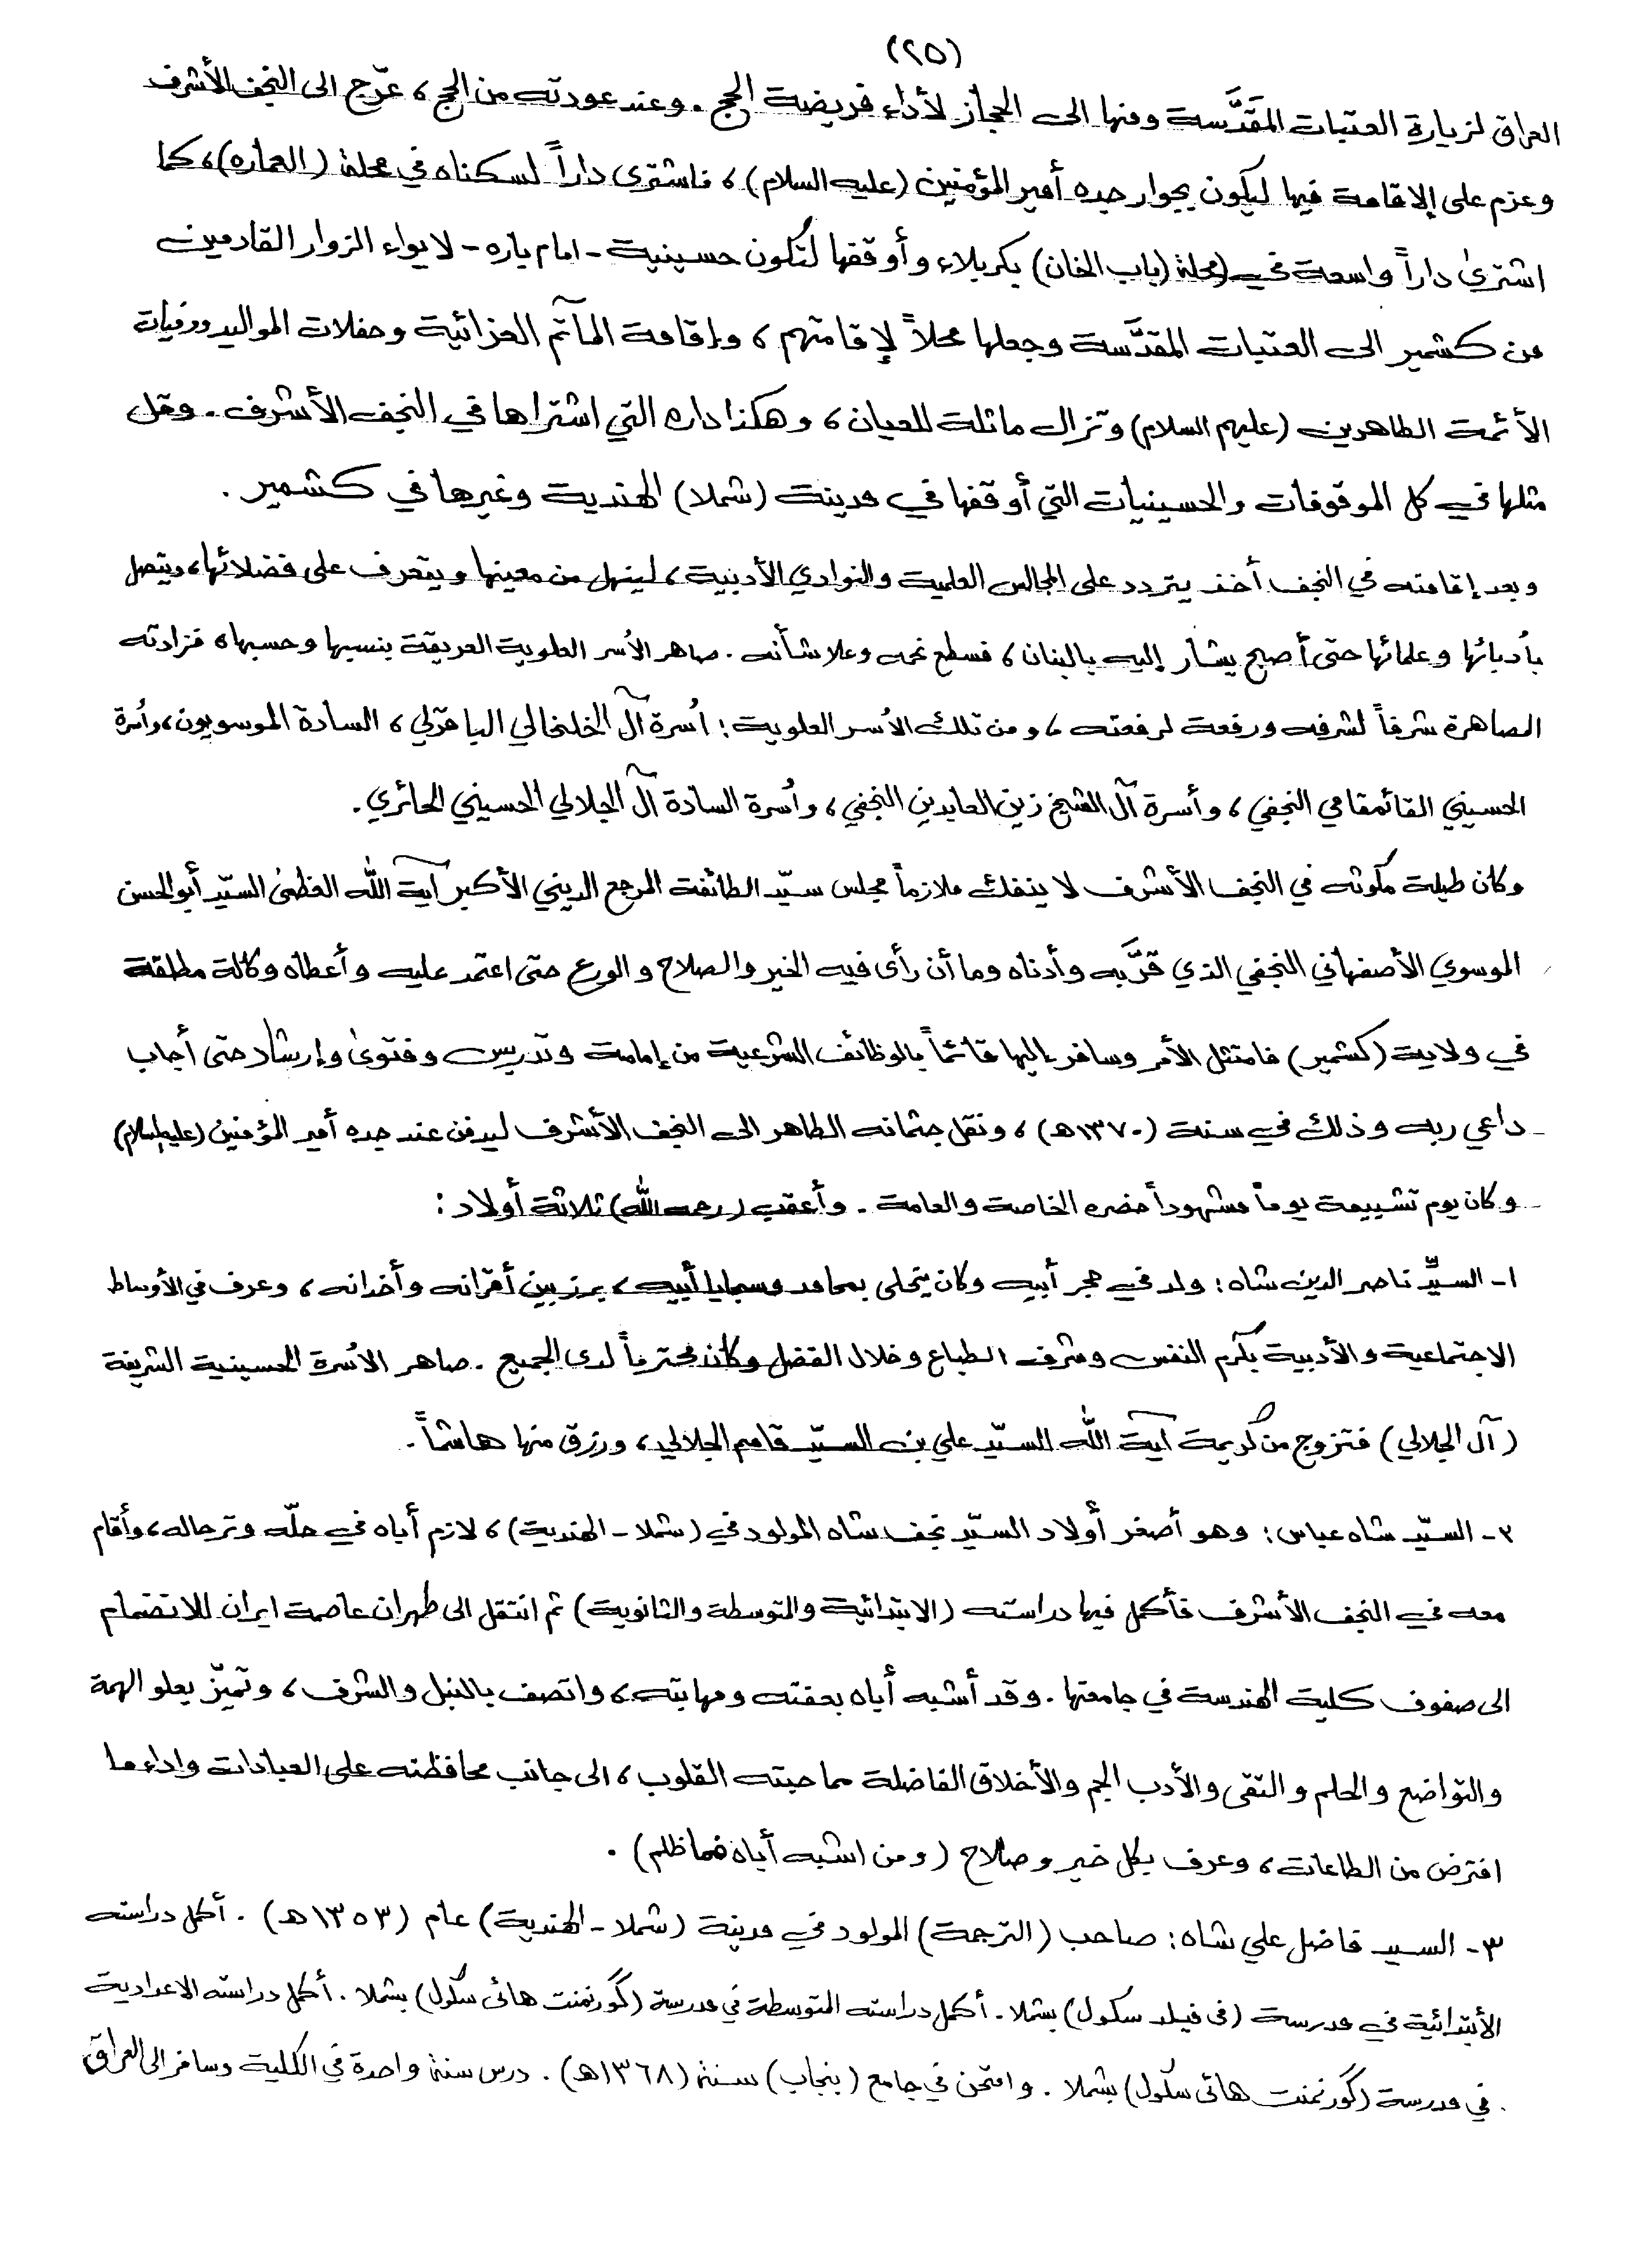 (٢٥)
العراق لزيارة العتبات المقدَّسة ومنها الى الحجاز لأداء فريضة الحج . وعند عودته من الحج ، عرّج الى النجف الأشرف
وعزم على الإقامة فيها ليكون بجوار جده أمير المؤمنين (عليه السلام) ، فاشترى داراً لسكناه في محلة (العماره) ، كما
اشترىٰ داراً واسعة في (محلة (باب الخان) بكربلاء وأوقفها لتكون حسينية - امام باره - لايواء الزوار القادمين
من كشمير الى العتبات المقدَّسة وجعلها محلاً لإقامتهم ، وإقامة المآتم العزائية وحفلات المواليد ووفيات
الأئمة الطاهرين (عليهم السلام) وتزال ماثلة للعيان ، وهكذا داره التي اشتراها في النجف الأشرف . وقل
مثلها في كل الموقوفات والحسينيات التي أوقفها في مدينة (شملا) الهندية وغيرها في كشمير .
وبعد إقامته في النجف أخذ يتردد على المجالس العلمية والنوادي الأدبية ، لينهل من معينها ويتعرف على فضلائها ، ويتصل
بأدبائها وعلمائها حتى أصبح يشار إليه بالبنان ، فسطع نجمه وعلا شأنه . صاهر الأسر العلوية العريقة بنسبها وحسبها ، فزادته
المصاهرة شرفاً لشرفه ورفعة لرفعته ، ومن تلك الأسر العلوية : اُسرة آل الخلخالي الياهرلي ، السادة الموسويون ، واُسرة
الحسيني القائمقامي النجفي ، وأسرة آل الشيخ زين العابدين النجفي ، واُسرة السادة آل الجلالي الحسيني الحائري .
وكان طيلة مكوثه في النجف الأشرف لا ينفك ملازماً مجلس سيّد الطائفة المرجع الديني الأكبر آية الله العظمىٰ السيّد أبو الحسن
الموسوي الأصفهاني النجفي الذي قرَّبه وأدناه وما أن رأى فيه الخير والصلاح والورع حتى اعتمد عليه وأعطاه وكالة مطلقة
في ولاية (كشمير) فامتثل الأمر وسافر إليها قائماً بالوظائف الشرعية من إمامة وتدريس وفتوىٰ وإرشاد حتى أجاب
داعي ربه وذلك في سنة (١٣٧٠هـ) ، ونقل جثمانه الطاهر الى النجف الأشرف ليدفن عند جده أمير المؤمنين (عليه السلام)
وكان يوم تشييعه يوماً مشهوداً حضره الخاصة والعامة . وأعقب (رحمه الله) ثلاثة أولاد :
١- السيّد ناصر الدين شاه : ولد في حجر أبيه وكان يتحلى بمحامد وسجايا أبيه ، برز بين أقرانه وأخدانه ، وعرف في الأوساط
الاجتماعية والأدبية بكرم النفس وشرف الطباع وخلال الفضل وكان محترماً لدى الجميع . صاهر الاُسرة الحسينية الشريفة
(آل الجلالي) فتزوج من كريمة آية الله السيّد علي بن السيّد قاسم الجلالي ، ورزق منها هاشماً .
٢- السيّد شاه عباس : وهو أصغر أولاد السيّد نجف شاه المولود في (شملا - الهندية) ، لازم أباه في حلّه وترحاله ، وأقام
معه في النجف الأشرف فأكمل فيها دراسته (الابتدائية والمتوسطة والثانوية) ثم انتقل الى طهران عاصمة ايران للانضمام
الى صفوف كلية الهندسة في جامعتها . وقد أشبه أباه بعفته ومهابته ، واتصف بالنبل والشرف ، وتميّز بعلو الهمة
والتواضع والحلم والتقى والأدب الجم والأخلاق الفاضلة مما حببته القلوب ، الى جانب محافظته على العبادات واداء ما
افترض من الطاعات ، وعرف بكل خير وصلاح (ومن اشبه أباه فما ظلم) .
٣- السيد فاضل علي شاه : صاحب (الترجمة) المولود في مدينة (شملا - الهندية) عام (١٣٥٣هـ) . أكمل دراسته
الأبتدائية في مدرسة (فى فيلد سكول) بشملا . أكمل دراسته المتوسطة في مدرسة (گورنمنت هائى سكول) بشملا . أكمل دراسته الاعدادية
في مدرسة (گورنمنت هائى سكول) بشملا . وامتحن في جامع (بنجاب) سنة (١٣٦٨هـ) . درس سنة واحدة في الكلية وسافر الى العراق